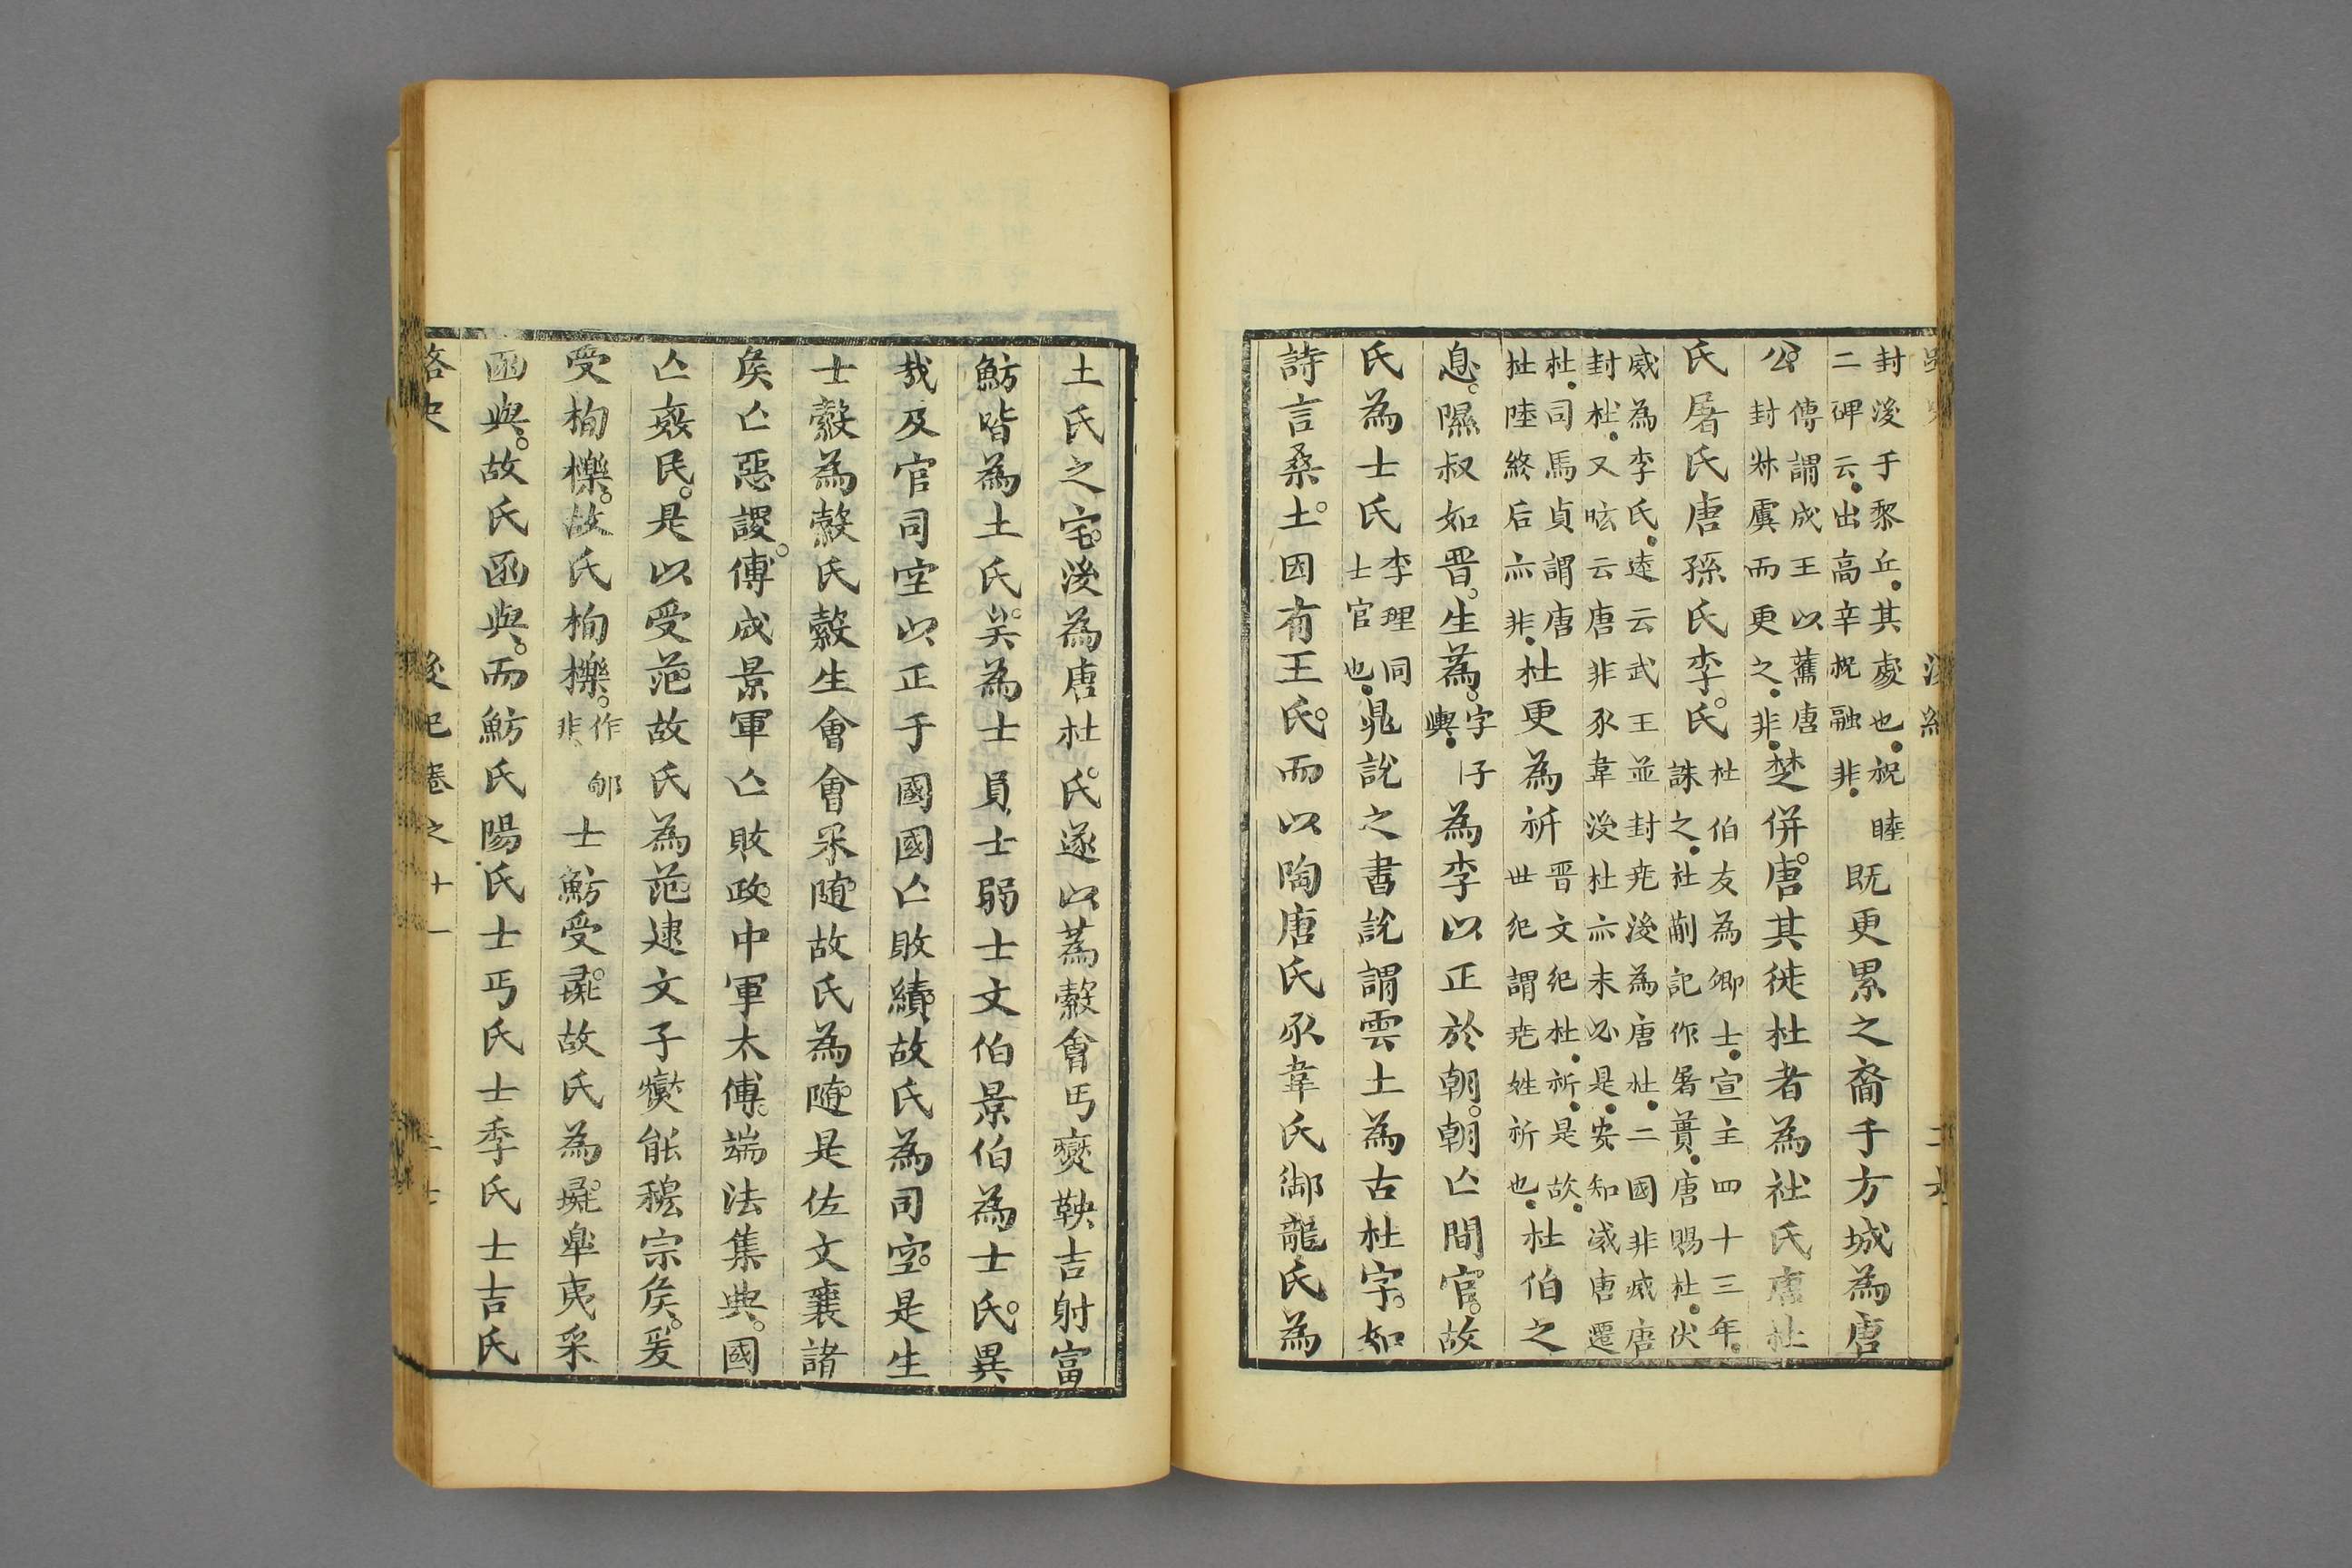 封後于黎丘其處也祝睦
二碑云出高辛祝融非
既更累之裔于方城為唐
公
傳謂成王以舊唐
封叔虞而更之非
楚併唐其徙杜者為社氏唐杜
氏屠氏唐孫氏李氏
杜伯友為卿士宣王四十三年
誅之社蒯記作屠蕢唐賜杜伏
威為李氏逵云武王並封尭後為唐杜二國非烕唐
封杜又昡云唐非豕韋後杜亦未必是安知烕唐遷
杜司馬貞謂唐
杜陸終后亦非
杜更為祈
晋文紀杜祈是故
世紀謂尭姓祈也
杜伯之
息隰叔如晋生蒍
字子
輿
為李以正於朝朝亾間官故
氏為士氏
李理同
士官也
晁說之書說謂雲土為古杜字如
詩言桑土因有王氏而以陶唐氏豕韋氏御龍氏為
土氏之宅後為唐杜氏遂以蒍縠會丐燮鞅吉射富
魴皆為土氏矣為士貟士弱士文伯景伯為士氏異
哉及官司空以正于國國亾敗績故氏為司空是生
士縠為縠氏縠生會會采随故氏為随是佐文襄諸
矦亾惡謖傅成景軍亾敗政中軍太傅端法集典國
亾姦民是以受范故氏為范逮文子燮能穆宗矦爰
受栒櫟故氏栒櫟
作郇
非
士魴受彘故氏為彘臯夷采
函與故氏函與而魴氏陽氏士丐氏士季氏士吉氏
路史 後紀卷之十一